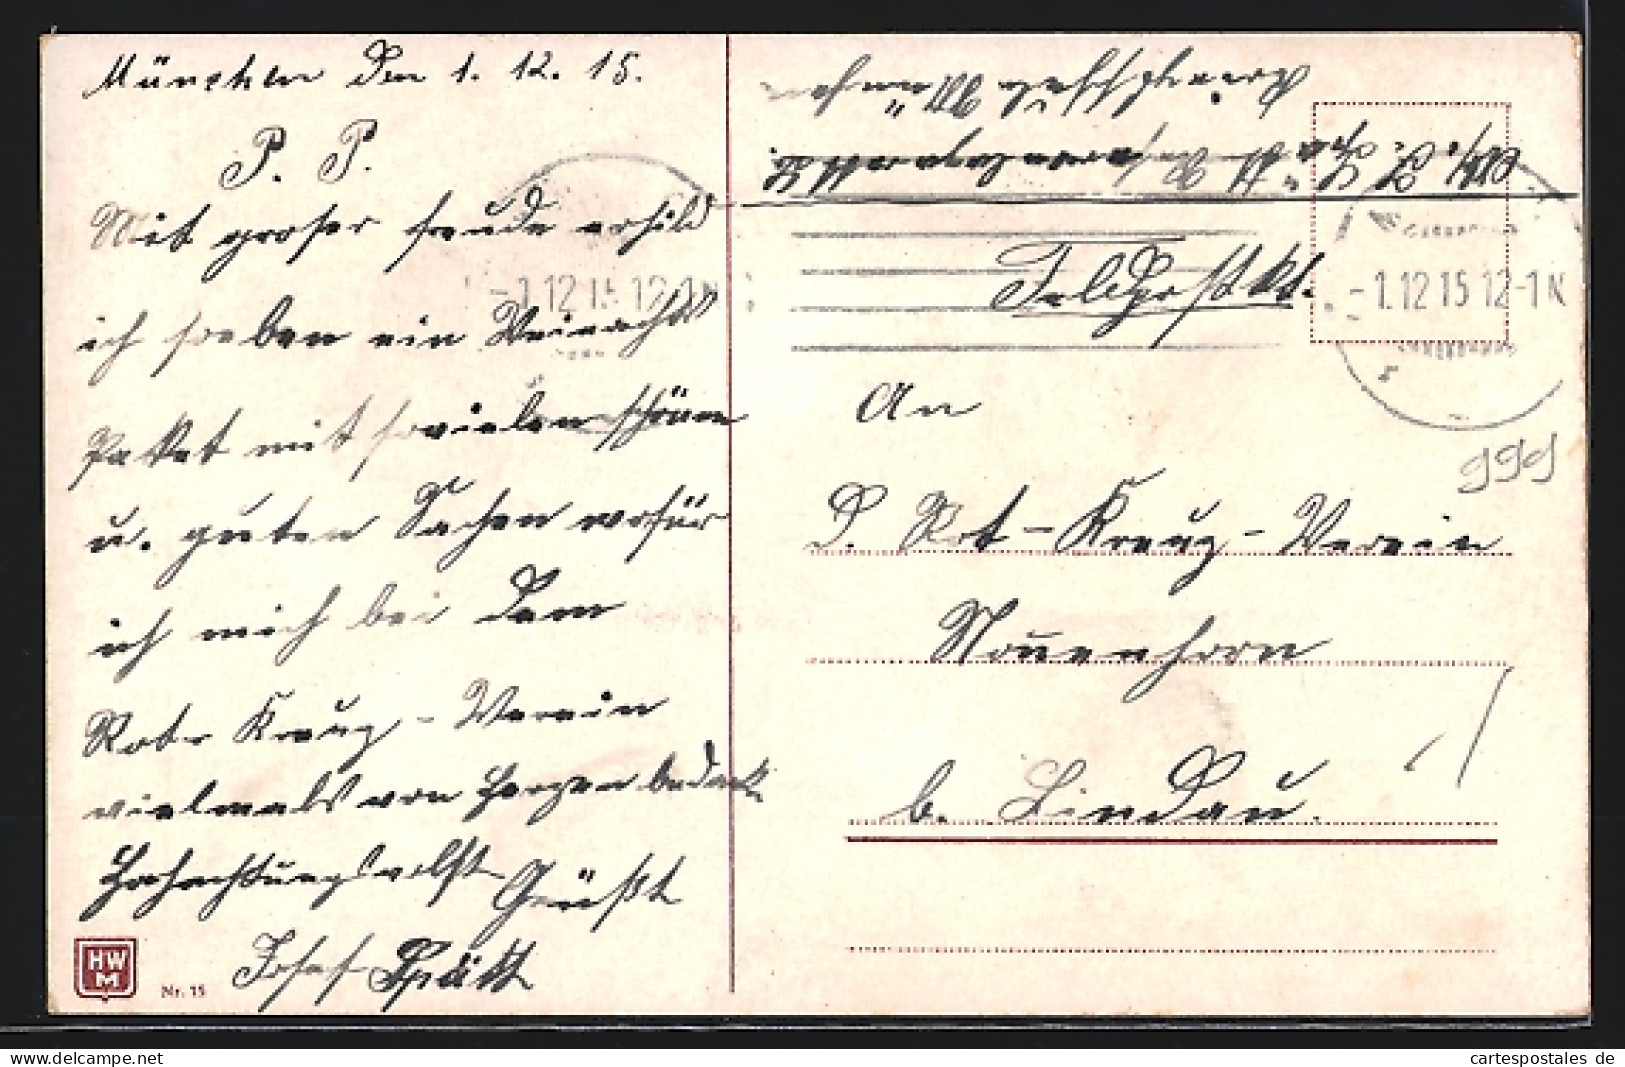 München den 1. 12. 15.
P. P.
Mit großer freude erhild
ich soeben ein Weinachts
Paket mit sovielen schönen
u. guten Sachen wofür
ich mich bei dem
Rote Kreuz-Verein
vielmals von Herzen bedank.
Hochachtungsvolst Grüßt
Josef Späth
HW
M
Nr. 15
Feldpostkt.
-1.12 15 12-1 N
-1.12 15 12-1 N
An
D. Rot-Kreuz-Verein
Nonnenhorn
b. Lindau.
999
cartespostales de